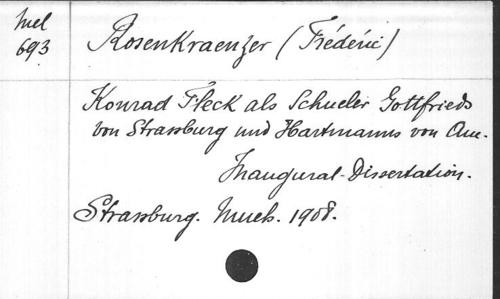 Mel
693
Rosenkraenzer (Fréderic)
Konrad Fleck als Schueler Gottfrieds
von Strassburg und Hartmanns von Aue.
Inaugural-Dissertation.
Strassburg. Mueh. 1908.